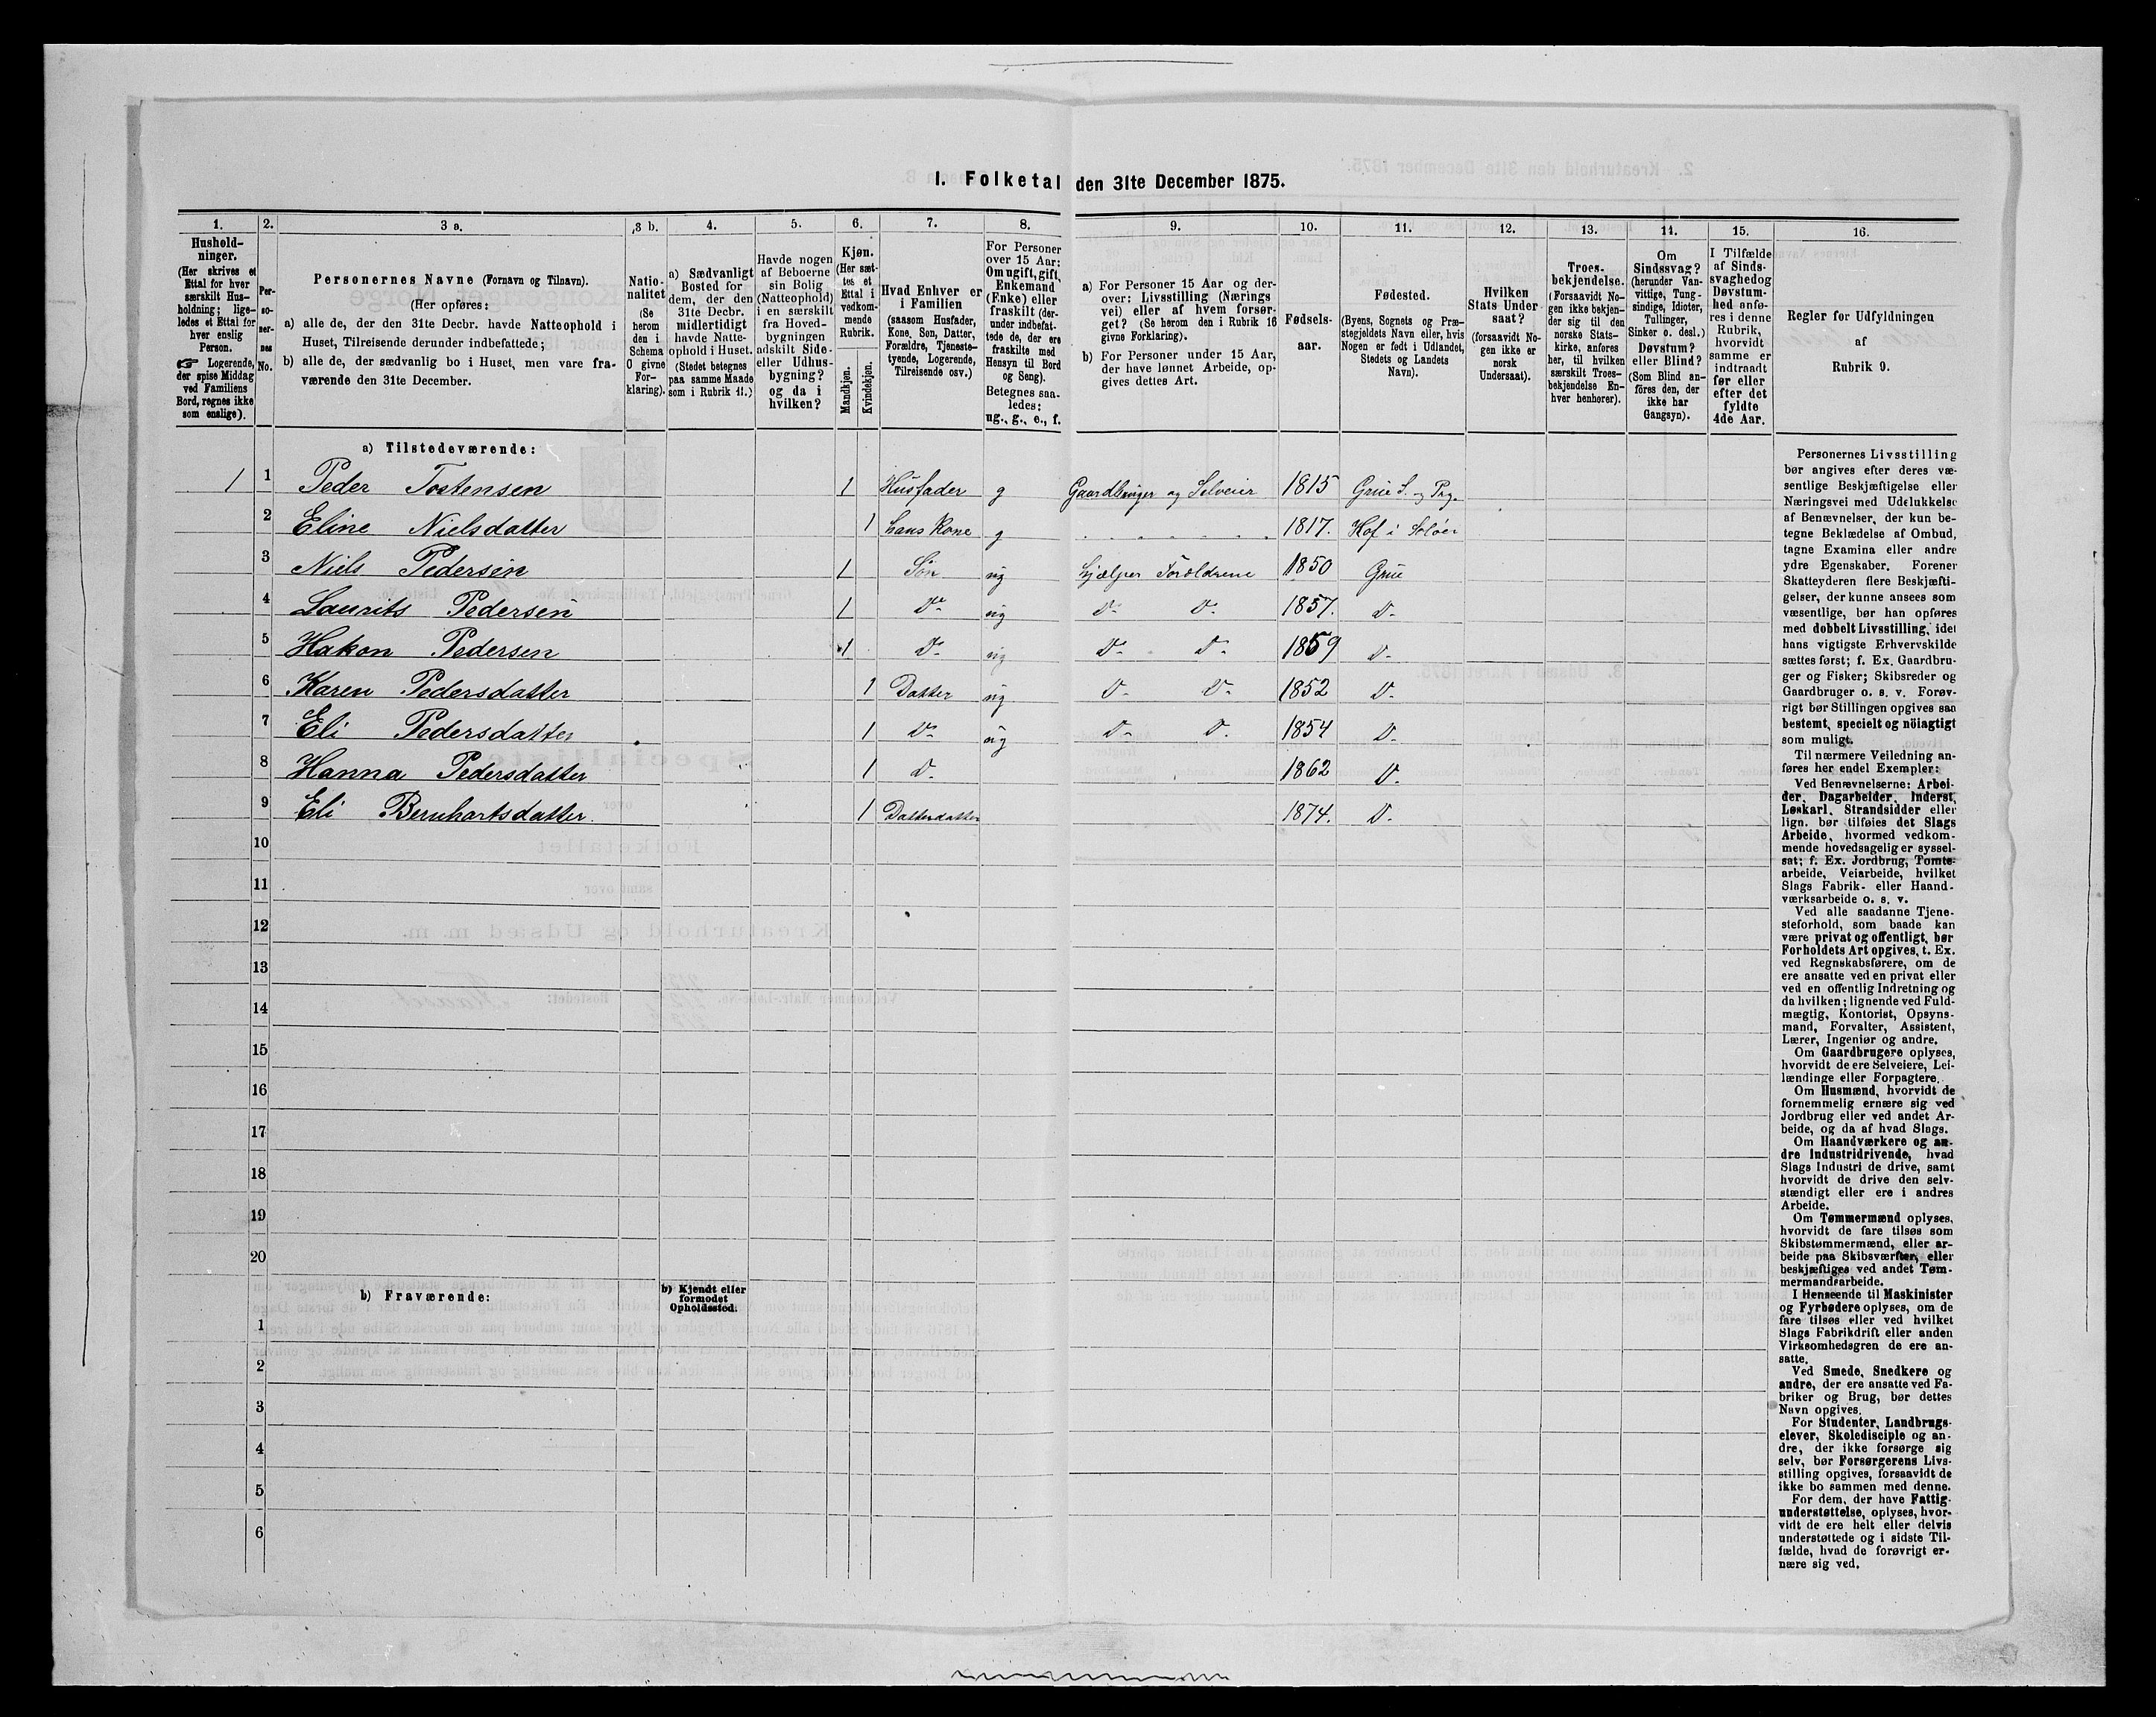 I. Folketal den 31te December 1875.
1. 2. 3 a. 3 b. 4. 5. 6. 7. 8. 9. 10. 11. 12. 13. 14. 15. 16.
Hushold-
ninger.
(Her skrives et
Ettal for hver
særskilt Hus-
holdning; lige-
ledes et Ettal for
hver enslig
Person.
☞ Logerende,
der spise Middag
ved Familiens
Bord, regnes ikke
som enslige).
Per-
so-
ner-
nes
No.
Personernes Navne (Fornavn og Tilnavn).
(Her opføres:
a) alle de, der den 31te Decbr. havde Natteophold i
Huset, Tilreisende derunder indbefattede;
b) alle de, der sædvanlig bo i Huset, men vare fra-
værende den 31te December.
Natio-
nalitet
(Se
herom
den i
Schema
O givne
For-
klaring).
a) Sædvanligt
Bosted for
dem, der den
31te Decbr.
midlertidigt
havde Natte-
ophold i Huset.
(Stedet betegnes
paa samme Maade
som i Rubrik 11.)
Havde nogen
af Beboerne
sin Bolig
(Natteophold)
i en særskilt
fra Hoved-
bygningen
adskilt Side-
eller Udhus-
bygning?
og da i
hvilken?
Kjøn.
(Her sæt-
tes et
Ettal i
vedkom-
mende
Rubrik.
Mandkjøn.
Kvindekjøn.
Hvad Enhver er
i Familien
(saasom Husfader,
Kone, Søn, Datter,
Forældre, Tjeneste-
tyende, Logerende,
Tilreisende osv.)
For Personer
over 15 Aar:
Om ugift, gift,
Enkemand
(Enke) eller
fraskilt (der-
under indbefat-
tede de, der ere
fraskilte med
Hensyn til Bord
og Seng).
Betegnes saa-
ledes:
ug., g., e., f.
a) For Personer 15 Aar og der-
over: Livsstilling (Nærings
vei) eller af hvem forsør-
get? (Se herom den i Rubrik 16
givne Forklaring).
b) For Personer under 15 Aar,
der have lønnet Arbeide, op-
gives dettes Art.
Fødsels-
aar.
Fødested.
(Byens, Sognets og Præ-
stegjeldets Navn eller, hvis
Nogen er født i Udlandet,
Stedets og Landets
Navn).
Hvilken
Stats Under-
saat?
(forsaavidt No-
gen ikke er
norsk
Undersaat).
Troes-
bekjendelse.
(Forsaavidt No-
gen ikke bekjen-
der sig til den
norske Stats-
kirke, anføres
her, til hvilken
særskilt Troes-
bekjendelse En-
hver henhører).
Om
Sindssvag?
(herunder Van-
vittige, Tung-
sindige, Idioter,
Tullinger,
Sinker o. desl.)
Døvstum?
eller Blind?
(Som Blind an-
føres den, der
ikke har
Gangsyn).
I Tilfælde
af Sinds-
svaghed og
Døvstum-
hed anfø-
res i denne
Rubrik,
hvorvidt
samme er
indtraadt
før eller
efter det
fyldte
4de Aar.
Regler før Udfyldningen
af
Rubrik 9.
a) Tilstedeværende:
1 1 Peder Tostensen 1 Husfader g Gaardbruger og Selveier 1815 Grue S. og Prg.
2 Eline Nielsdatter 1 hans Kone g 1817. Hof i Soløer
3 Niels Pedersen 1 Søn ug hjælper Forældrene 1850 Grue
4 Laurits Pedersen 1 D- ug D- D- 1857. D-
5 Hakon Pedersen 1 D- ug D- D- 1859 D-
6 Karen Pedersdatter 1 Datter ug D- D- 1852 D-
7 Eli Pedersdatter 1 D- ug D- D- 1854 D-
8 Hanna Pedersdatter 1 D- 1862 D-
9 Eli Bernhartsdatter. 1 Datterdatter 1874. D-
10
11
12
13
14
15
16
17
18
19
20
b) Fraværende:
b) Kjendt eller
formodet
Opholdssted.
1
2
3
4
5
6
Personernes Livsstilling
bør angives efter deres væ-
sentlige Beskjæftigelse eller
Næringsvei med Udelukkelse
af Benævnelser, der kun be-
tegne Beklædelse af Ombud,
tagne Examina eller andre
ydre Egenskaber. Forener
Skatteyderen flere Beskjæfti-
gelser, der kunne ansees som
væsentlige, bør han opføres
med dobbelt Livsstilling, idet
hans vigtigste Erhvervskilde
sættes først; f. Ex. Gaardbru-
ger og Fisker; Skibsreder og
Gaardbruger o. s. v. Forøv-
rigt bør Stillingen opgives saa
bestemt, specielt og nöiagtigt
som muligt.
Til nærmere Veiledning an-
føres her endel Exempler:
Ved Benævnelserne: Arbei-
der, Dagarbeider, Inderst,
Løskarl, Strandsidder eller
lign. bør tilføies det Slags
Arbeide, hvormed vedkom-
mende hovedsagelig er syssel-
sat; f. Ex. Jordbrug, Tomte-
arbeide, Veiarbeide, hvilket
Slags Fabrik- eller Haand-
værksarbeide o. s. v.
Ved alle saadanne Tjene-
steforhold, som baade kan
være privat og offentligt, bør
Forholdets Art opgives, t. Ex.
ved Regnskabsførere, om de
ere ansatte ved en privat eller
ved en offentlig Indretning og
da hvilken; lignende ved Fuld-
mægtig, Kontorist, Opsyns-
mand, Forvalter, Assistent,
Lærer, Ingeniør og andre.
Om Gaardbrugere oplyses,
hvorvidt de ere Selveiere, Lei-
lændinge eller Forpagtere.
Om Husmænd, hvorvidt de
fornemmelig ernære sig ved
Jordbrug eller ved andet Ar-
beide, og da af hvad Slags.
Om Haandværkere og an-
dre Industridrivende, hvad
Slags Industri de drive, samt
hvorvidt de drive den selv-
stændigt eller ere i andres
Arbeide.
Om Tømmermænd oplyses,
hvorvidt de fare tilsøs som
Skibstømmermænd, eller ar-
beide paa Skibsværfter, eller
beskjæftiges ved andet Tøm-
mermandsarbeide.
I Henseende til Maskinister
og Fyrbødere oplyses, om de
fare tilsøs eller ved hvilket
Slags Fabrikdrift eller anden
Virksomhedsgren de ere an-
satte.
Ved Smede, Snedkere og
andre, der ere ansatte ved Fa-
briker og Brug, bør dettes
Navn opgives.
For Studenter, Landbrugs-
elever, Skoledisciple og an-
dre, der ikke forsørge sig
selv, bør Forsørgerens Livs-
stilling opgives, forsaavidt de
ikke bo sammen med denne.
For dem, der have Fattig-
understøttelse, oplyses, hvor-
vidt de ere helt eller delvis
understøttede og i sidste Til-
fælde, hvad de forøvrigt er-
nære sig ved.